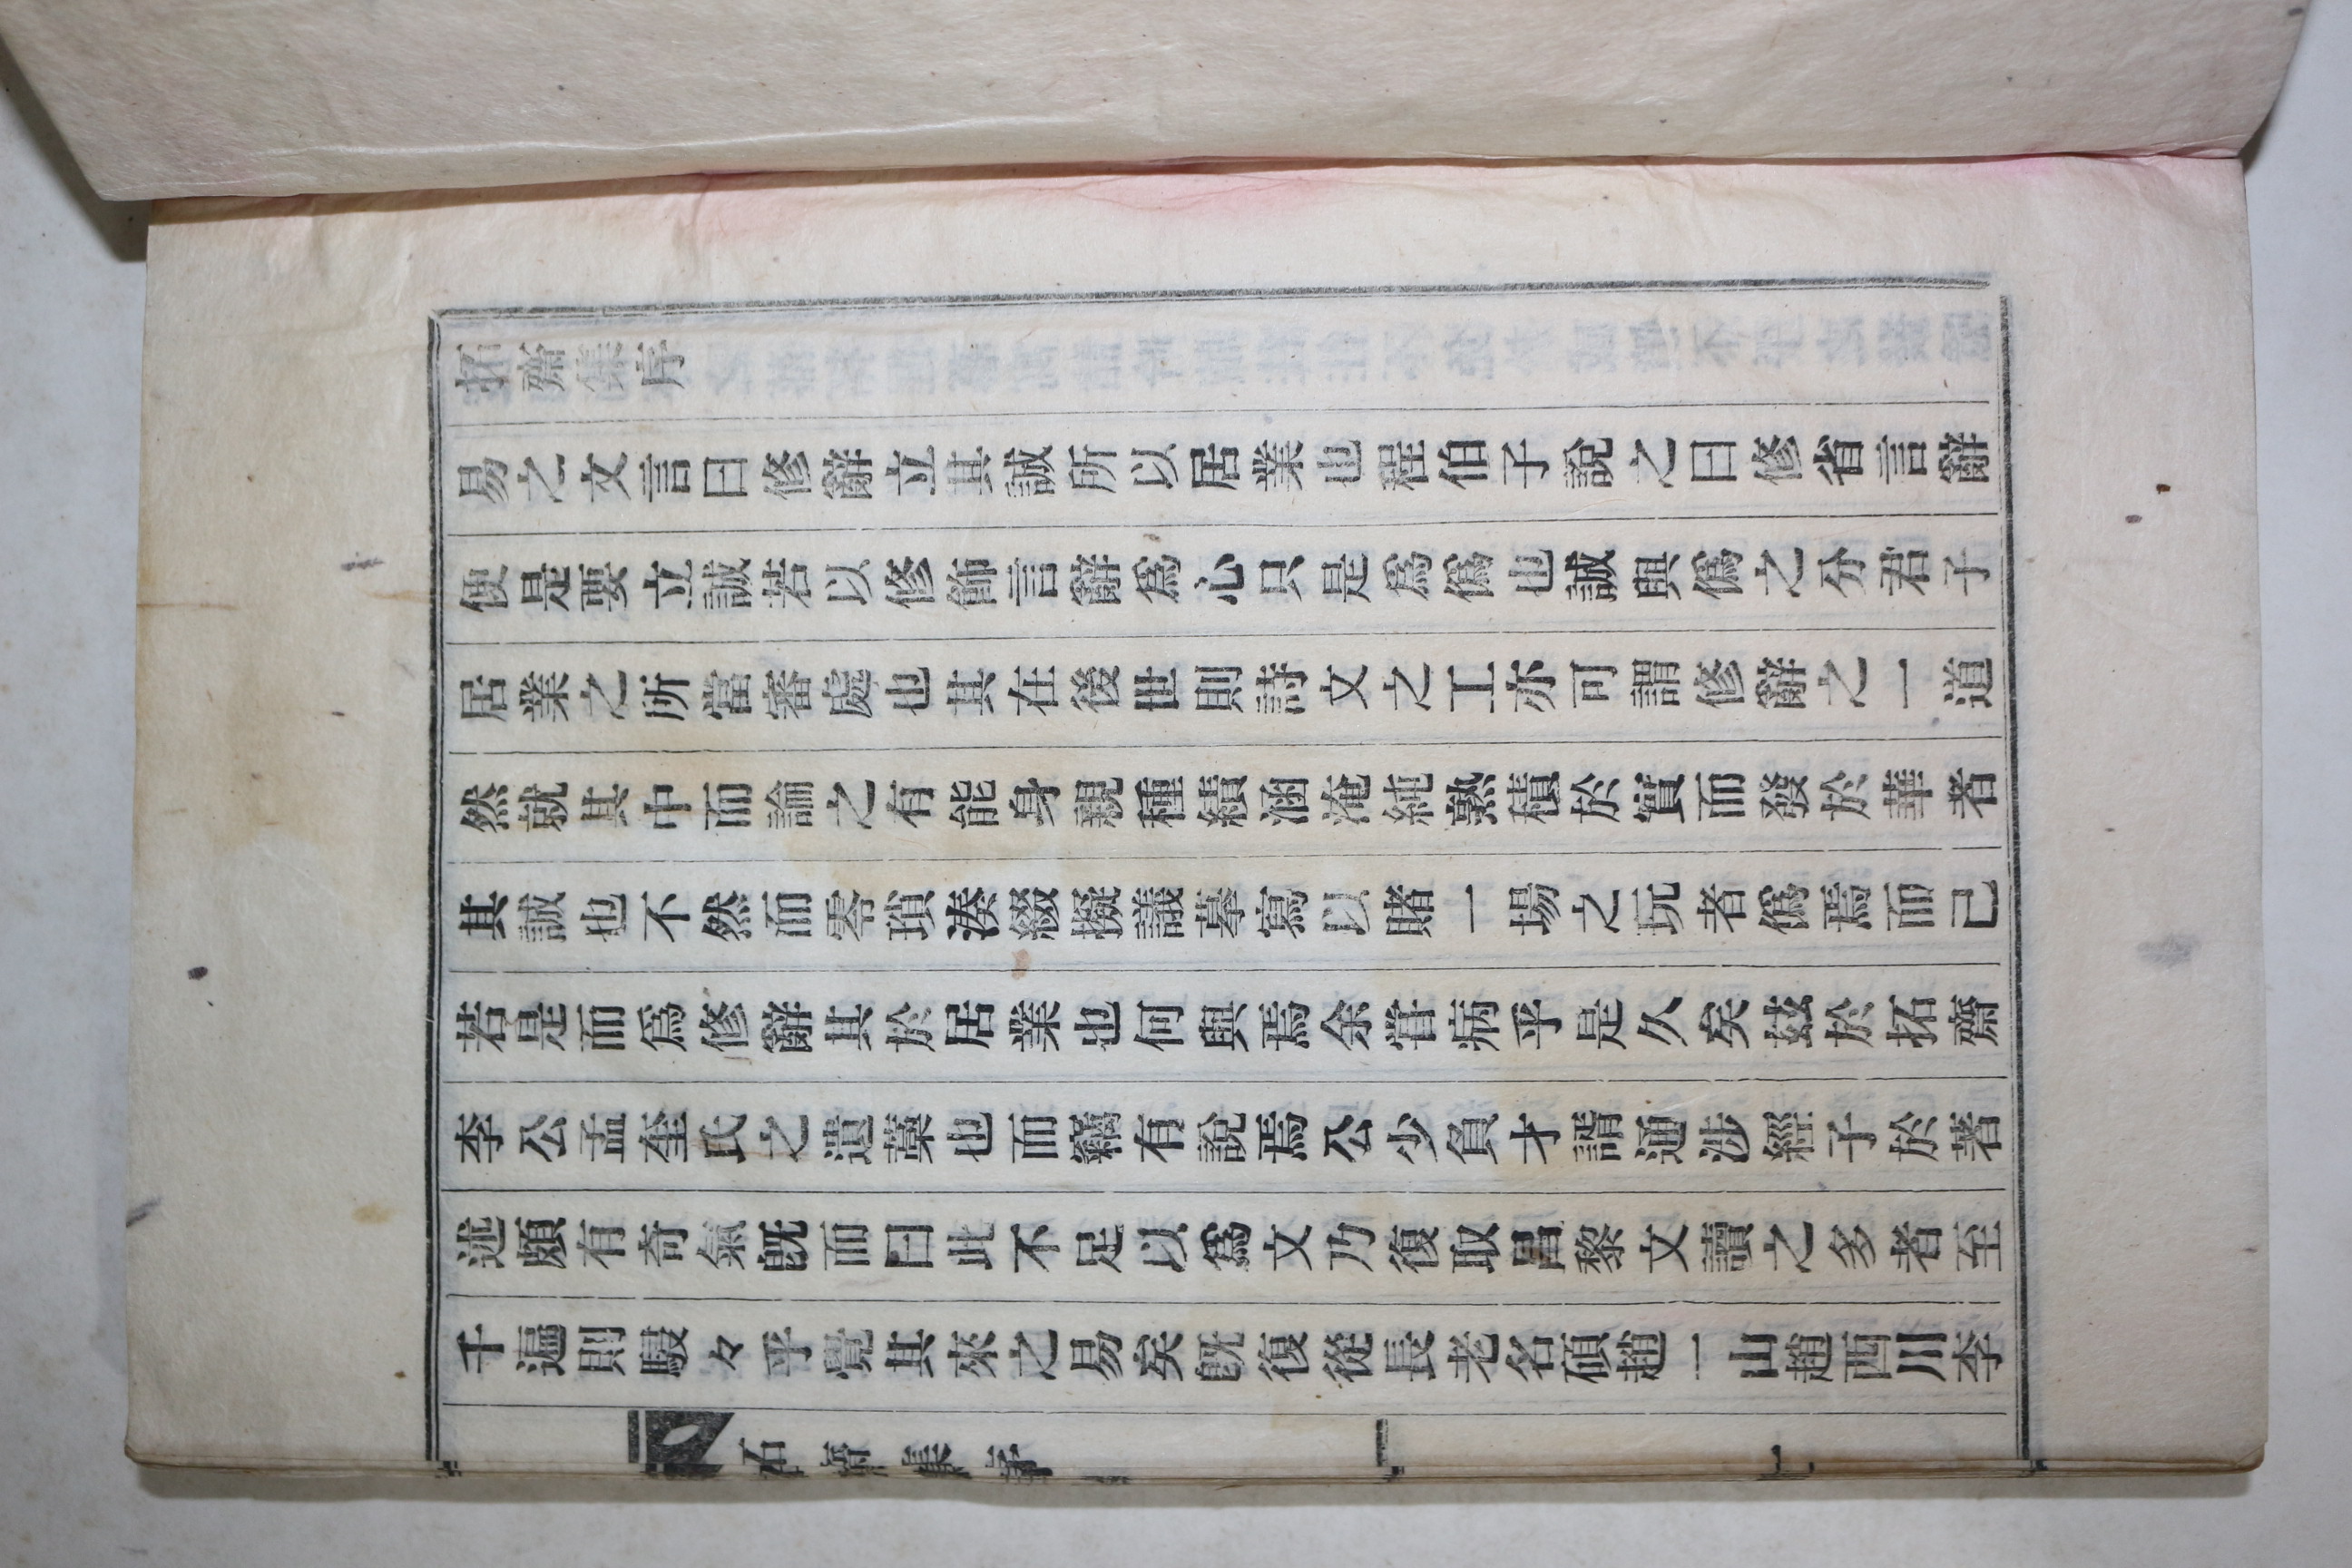 拓齋集序
易之文言曰修辭立其誠所以居業也程伯子說之曰修省言辭
便是要立誠若以修飾言辭爲心只是爲僞也誠與僞之分君子
居業之所當審處也其在後世則詩文之工亦可謂修辭之一道
然就其中而論之有能身親種績涵淹純熟積於實而發於華者
其誠也不然而零瑣湊綴擬議摹寫以賭一場之玩者僞焉而已
若是而爲修辭其於居業也何與焉余甞病乎是久矣玆於拓齋
李公孟奎氏之遺藁也而竊有說焉公少負才諝通涉經子於著
述頗有奇氣旣而曰此不足以爲文乃復取昌黎文讀之多者至
千遍則駸々乎覺其來之易矣旣復從長老名碩趙一山趙西川李
拓齋集序